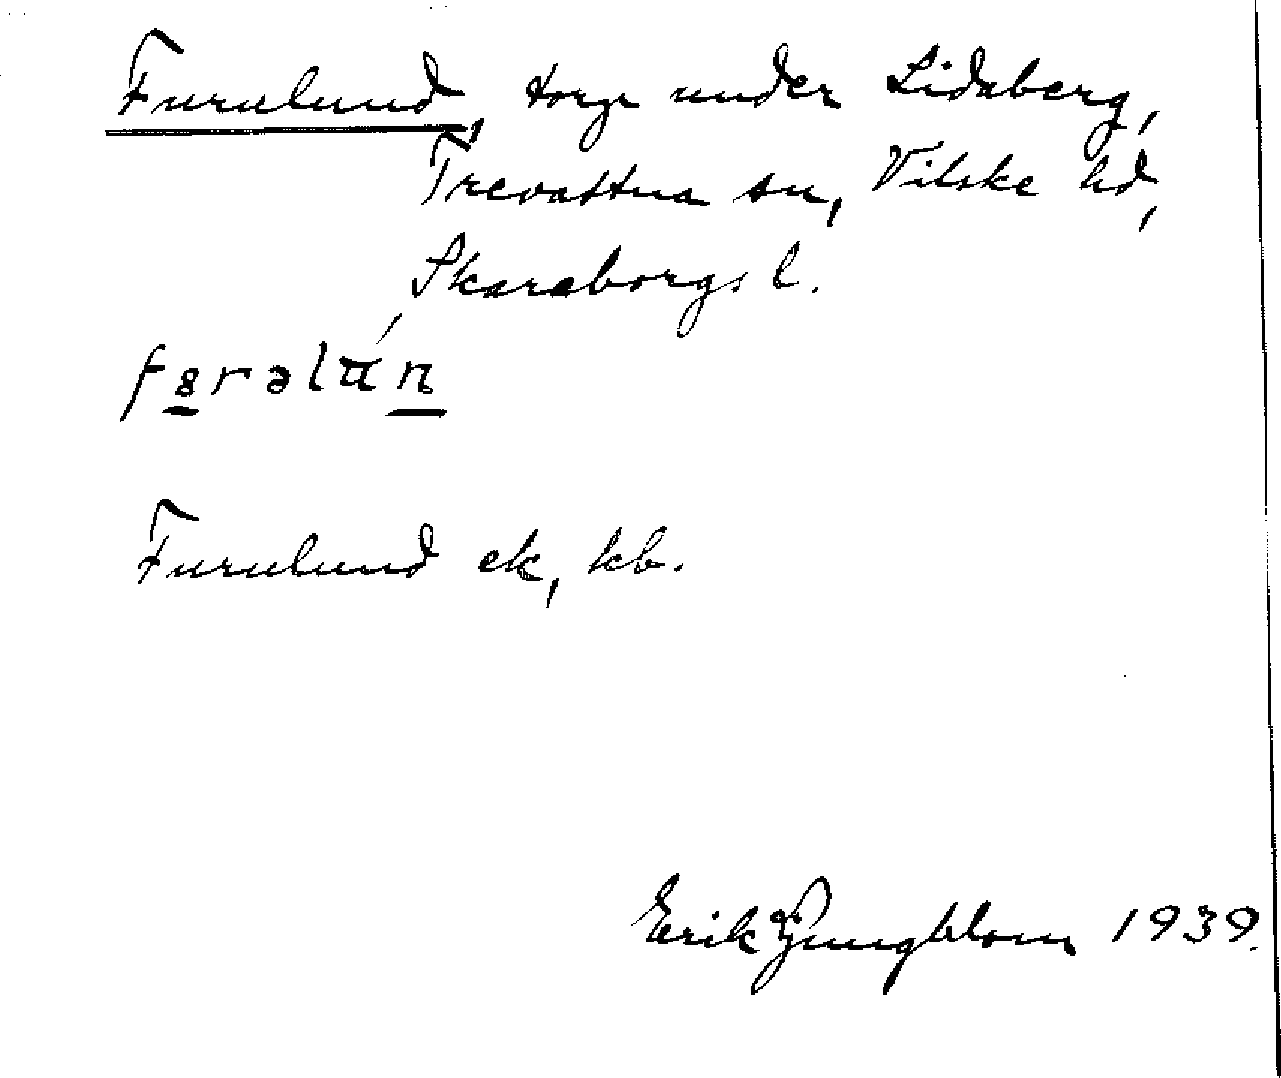 Furulund, torp under Lidaberg,
Trevattna sn, Vilske hd,
Skaraborgs l.
Furulund ek, kb.
Erik Ljungblom 1939.